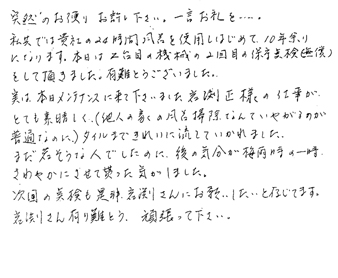 突然のお便りお許し下さい。一言お礼を….。
私共では貴社の24時間風呂を使用しはじめて、10年余り
になります。本日は2台目の機械の2回目の保守点検(無償)
をして頂きました。有難とうございました。
実は、本日メンテナンスに来て下さいました岩渕正様の仕事が、
とても素晴しく、(他人の家の風呂掃除なんていやがるのが
普通なのに、)タイルまできれいに流していかれました。
まだ若そうな人でしたのに、後の気分が梅雨時の一時、
さわやかにさせて貰った気がしました。
次回の点検も是非、岩渕さんにお願いしたいと存じてます。
岩渕さん有り難とう、頑張って下さい。